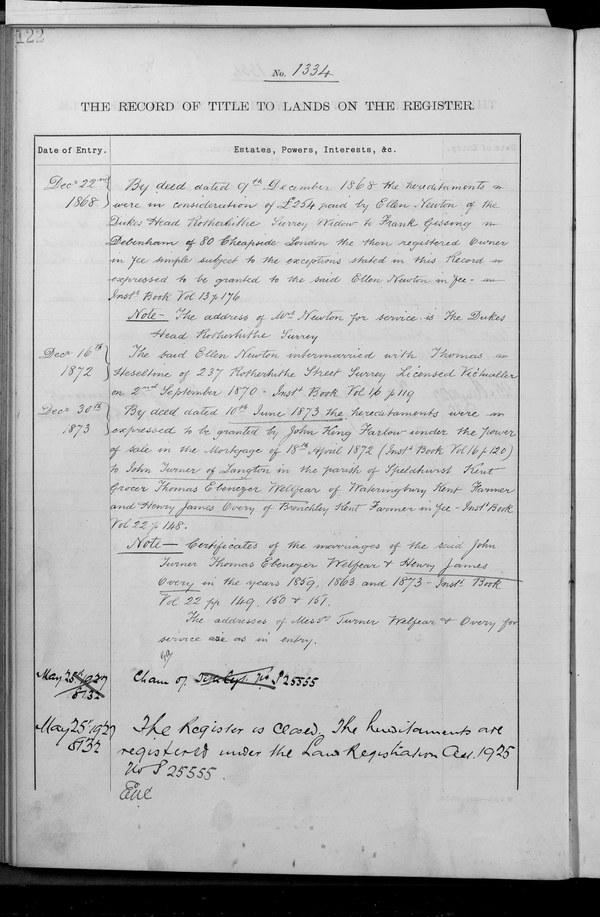 122
No. 1334
THE RECORD OF TITLE TO LANDS ON THE REGISTER.
Date of Entry.
Estates, Powers, Interests, &c.
Decr 22nd 1868
By deed dated 9th December 1868 the hereditaments
were in consideration of £254 paid by Ellen Newton of the
Dukes Head Rotherhithe Surrey Widow to Frank Gissing
Debenham of 80 Cheapside London the then registered Owner
in fee simple subject to the exceptions stated in this Record
expressed to be granted to the said Ellen Newton in fee -
Inst. Book Vol 13 p 176
Note- The address of Mrs Newton for service is The Dukes
Head Rotherhithe Surrey
Decr 16th 1872
The said Ellen Newton intermarried with Thomas
Heseltine of 237 Rotherhithe Street Surrey Licensed Victualler
on 2nd September 1870 - Inst. Book Vol 16 p 119
Decr 30th 1873
By deed dated 10th June 1873 the hereditaments were
expressed to be granted by John King Farlow under the power
of sale in the Mortgage of 18th April 1872 (Inst. Book Vol 16 p 120)
to John Turner of Langton in the parish of Speldhurst Kent
Grocer Thomas Ebenezer Welfear of Wateringbury Kent Farmer
and Henry James Overy of Brenchley Kent Farmer in fee - Inst. Book
Vol 22 p 148.
Note - Certificates of the marriages of the said John
Turner Thomas Ebenezer Welfear & Henry James
Overy in the years 1859, 1863 and 1873 - Inst. Book
Vol 22 pp 149. 150 & 151.
The addresses of Messrs Turner Welfear & Overy for
service are as in entry.
May 25th 1927
8132
No P 25555
May 25th 1927
8132
The Register is closed. The hereditaments are
registered under the Land Registration Act. 1925
No P 25555.